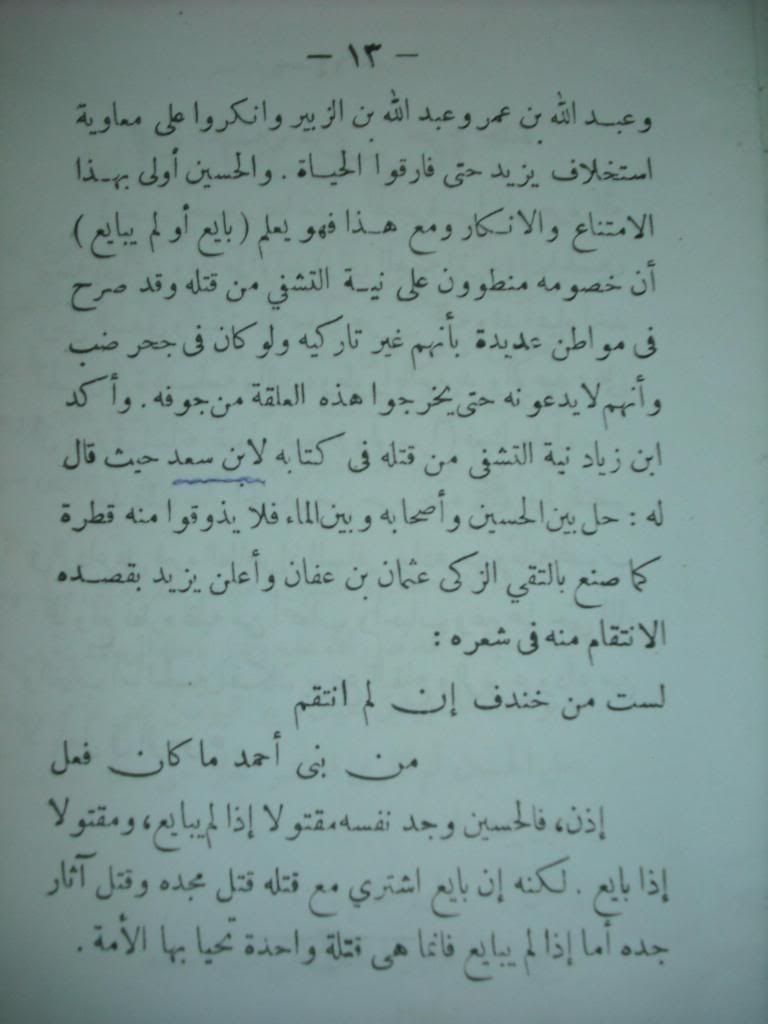 – ١٣ –
وعبد الله بن عمر وعبد الله بن الزبير وانكروا على معاوية
استخلاف يزيد حتى فارقوا الحياة . والحسين أولى بهذا
الامتناع والانكار ومع هذا فهو يعلم (بايع أو لم يبايع)
أن خصومه منطوون على نية التشفي من قتله وقد صرح
فى مواطن عديدة بأنهم غير تاركيه ولو كان فى جحر ضب
وأنهم لا يدعونه حتى يخرجوا هذه العلقة من جوفه . وأكد
ابن زياد نية التشفى من قتله فى كتابه لابن سعد حيث قال
له : حل بين الحسين وأصحابه وبين الماء فلا يذوقوا منه قطرة
كما صنع بالتقي الزكى عثمان بن عفان وأعلن يزيد بقصده
الانتقام منه فى شعره :
لست من خندف إن لم انتقم
من بنى أحمد ما كان فعل
إذن، فالحسين وجد نفسه مقتولا إذا لم يبايع، ومقتولا
إذا بايع . لكنه إن بايع اشتري مع قتله قتل مجده وقتل آثار
جده أما إذا لم يبايع فانما هى قتلة واحدة تحيا بها الأمة .